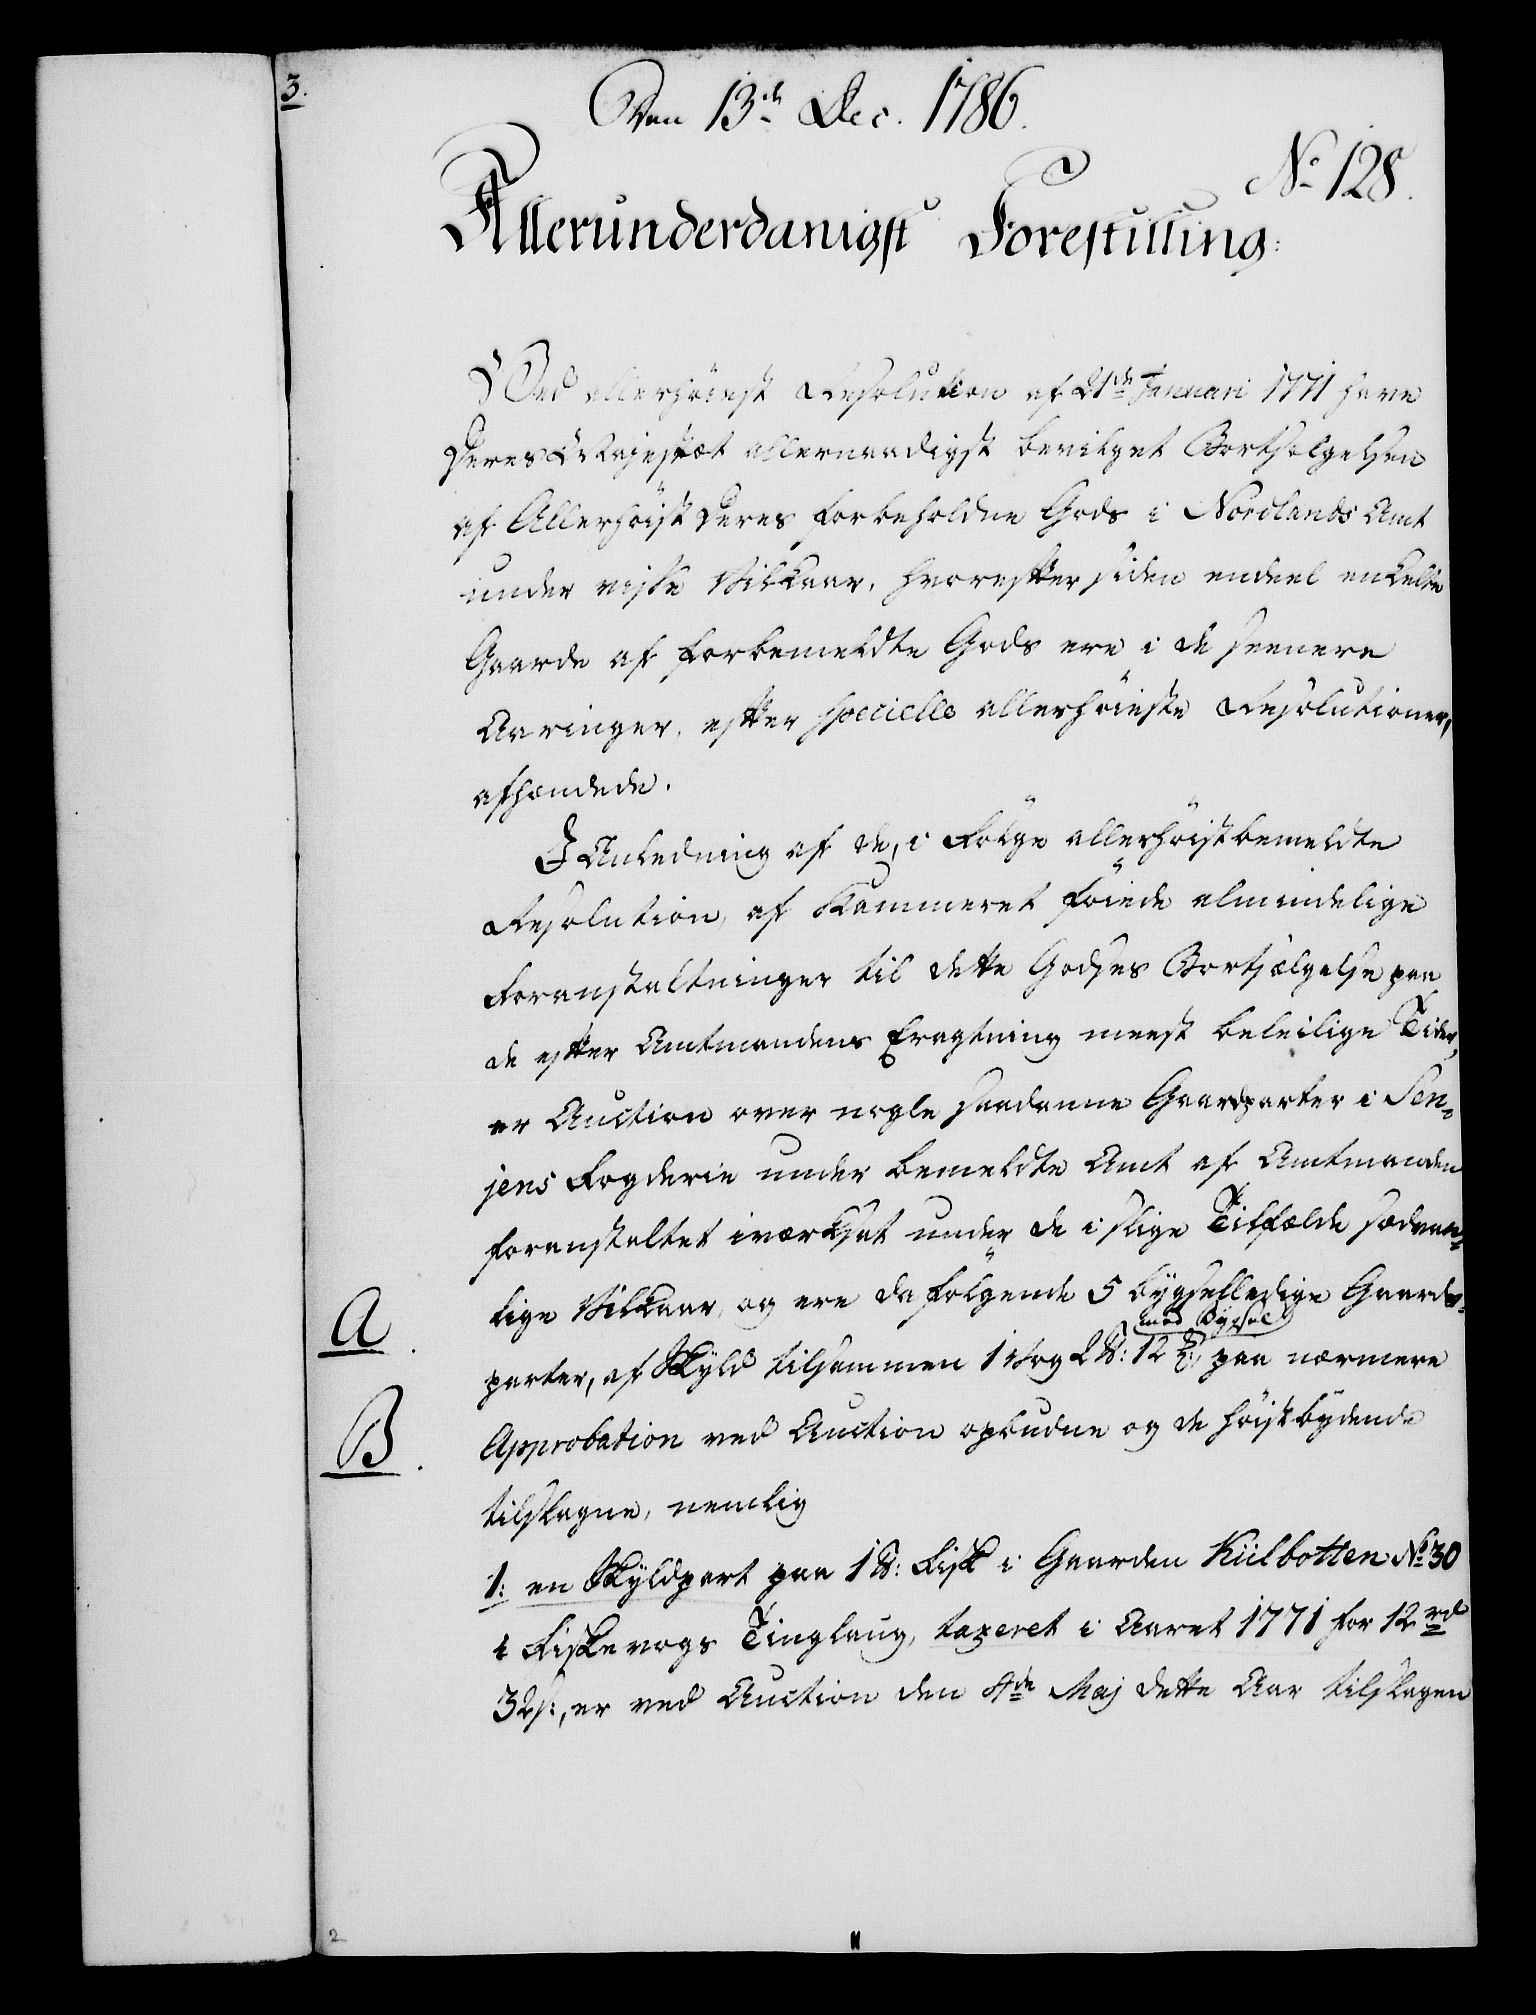 3.
Den 13de Dec. 1786.
No 128.
Allerunderdanigst Forestilling:
Ved allerhöiest Resolution af 21de Januari 1771 have
Deres Majestæt allernaadigst bevilget Bortsælgelsen
af Allerhöist Deres forbeholdne Gods i Nordlands Amt
under visse Vilkaar, hvorefter siden endeel enkelte
Gaarde af forbemeldte Gods ere i de seenere
Aaringer, efter specielle allerhöieste Resolutioner,
afhændede.
I Anledning af de, i Fölge allerhöistbemeldte
Resolution, af Kammeret föiede almindelige
Foranstaltninger til dette Godses Bortsælgelse paa
de efter Amtmandens Eragtning meest beleilige Tider,
er Auction over nogle saadanne Gaardparter i Sen-
jens Fogderie under bemeldte Amt af Amtmanden
foranstaltet iværksat under de i slige Tilfælde sædvan-
lige Vilkaar, og ere da fölgende 5 bygselledige Gaard-
A.
med Bygsel
parter, af Skyld tilsammen 1 Vog 2 ℔: 12 ℔:, paa nærmere
B.
Approbation ved Auction opbudne og de höistbydende
tilslagne, nemlig
1: en Skyldpart paa 1 ℔: Fisk i Gaarden Kiilbotten No 30
i Fiskevogs Tinglaug, taxeret i Aaret 1771 for 12 rd
32 s:, er ved Auction den 4de Maj dette Aar tilslagen
2